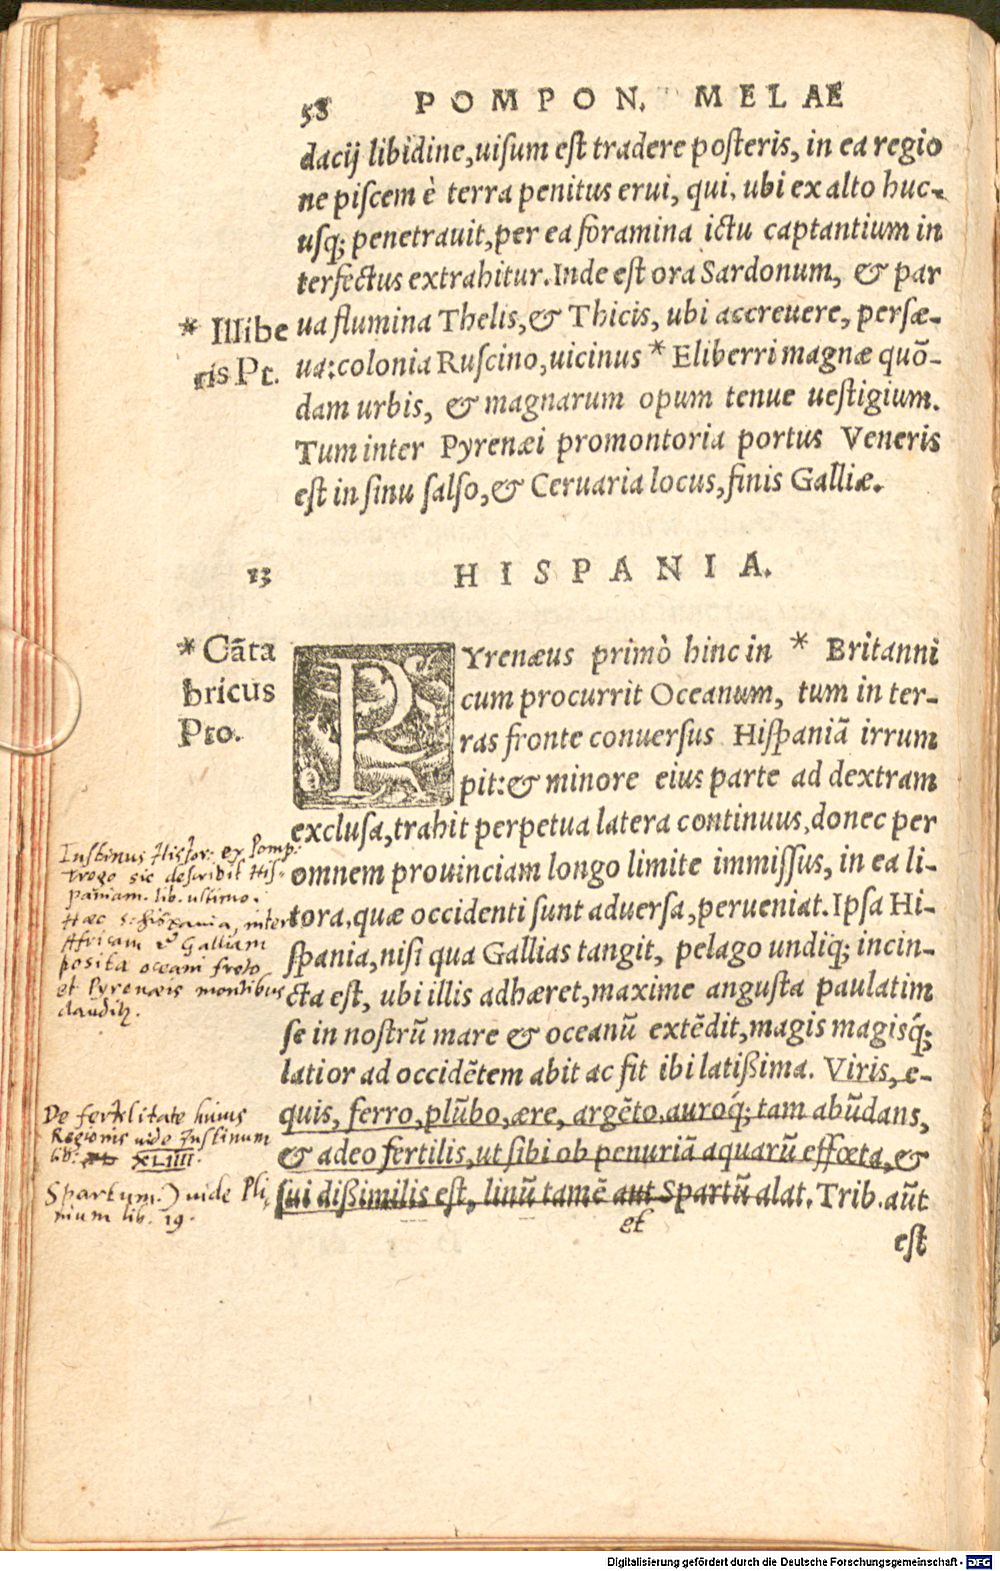 58 POMPON. MELAE
dacij libidine, uisum est tradere posteris, in ea regio
ne piscem è terra penitus erui, qui, ubi ex alto huc-
usq; penetrauit, per ea foramina ictu captantium in
terfectus extrahitur. Inde est ora Sardonum, & par
* Illibe
ris Pt.
ua flumina Thelis, & Thicis, ubi accreuere, persæ-
ua: colonia Ruscino, uicinus * Eliberri magnæ quō-
dam urbis, & magnarum opum tenue uestigium.
Tum inter Pyrenæi promontoria portus Veneris
est in sinu salso, & Ceruaria locus, finis Galliæ.
13 HISPANIA.
* Cāta
bricus
Pto.
PYrenæus primò hinc in * Britanni
cum procurrit Oceanum, tum in ter-
ras fronte conuersus Hispaniā irrum
pit: & minore eius parte ad dextram
exclusa, trahit perpetua latera continuus, donec per
omnem prouinciam longo limite immissus, in ea li-
tora, quæ occidenti sunt aduersa, perueniat. Ipsa Hi-
spania, nisi qua Gallias tangit, pelago undiq; incin-
cta est, ubi illis adhæret, maxime angusta paulatim
se in nostrū mare & oceanū extēdit, magis magisq́;
latior ad occidētem abit ac fit ibi latißima. Viris, e-
quis, ferro, plūbo, ære, argēto, auroq́; tam abūdans,
& adeo fertilis, ut sibi ob penuriā aquarū effœta, &
sui dißimilis est, linū tamē aut Spartū alat. Trib. aūt
et
est
Iustinus Histor: ex Pomp:
Trogo sic describit His-
paniam. lib. ultimo.
Hæc s: hispania, inter
Africam et Galliam
posita oceani freto
et Pyrenæis montibus
claudit.
De fertilitate huius
Regionis uide Iustinum
lib: XLIIII.
Spartum.) uide Pli
nium lib. 19.
Digitalisierung gefördert durch die Deutsche Forschungsgemeinschaft - DFG